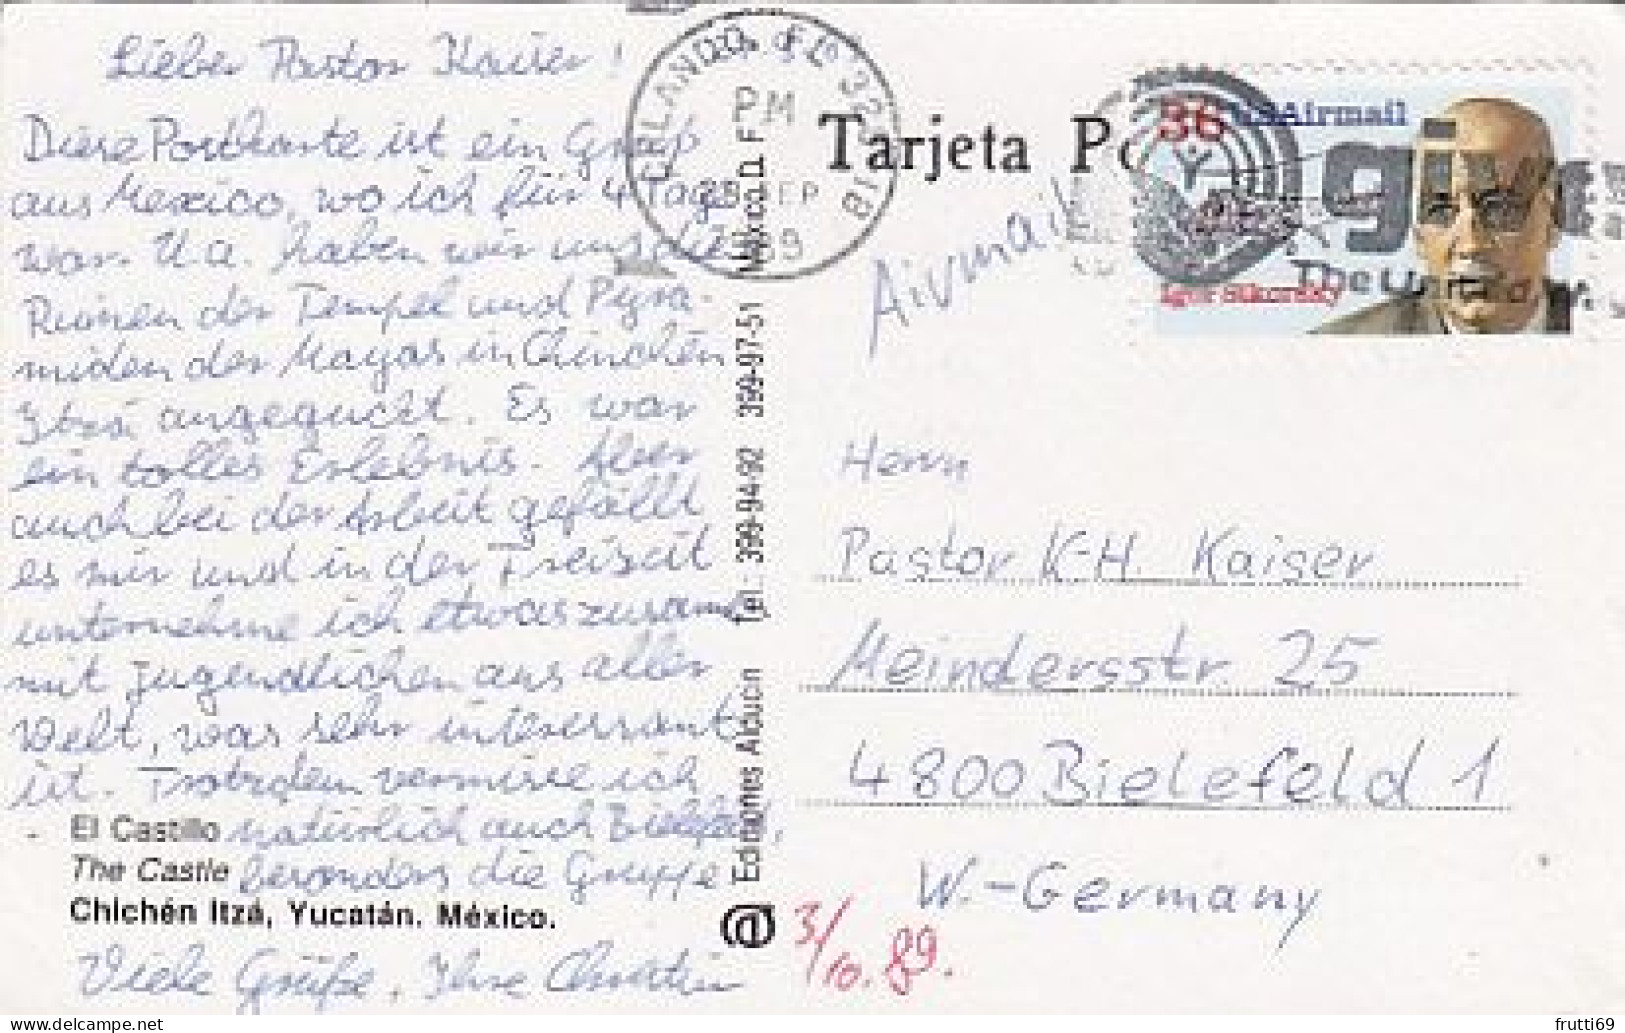 Lieber Pastor Kaiser!
Diese Postkarte ist ein Gruß
aus Mexico, wo ich für 4 Tage
war. U.a. haben wir uns die
Ruinen der Tempel und Pyra-
miden der Mayas in Chinchén
Itzá angeguckt. Es war
ein tolles Erlebnis. Aber
auch bei der Arbeit gefällt
es mir und in der Freizeit
unternehme ich etwas zusamm
mit Jugendlichen aus aller
Welt, was sehr interessant
ist. Trotzdem vermisse ich
natürlich auch Bielefeld,
besonders die Gruppe
Viele Grüße, Ihre Christin
El Castillo
The Castle
Chichén Itzá, Yucatán. México.
Ediciones Alducin Tel.: 399-94-92 399-97-51 México D F
ORLANDO, FL 328
PM
SEP
Tarjeta Po
36 USAirmail
Igor Sikorsky
give
The United Way
Airmail
Herrn
Pastor K-H. Kaiser
Meindersstr. 25
4800 Bielefeld 1
W.-Germany
3/10.89.
frutti69